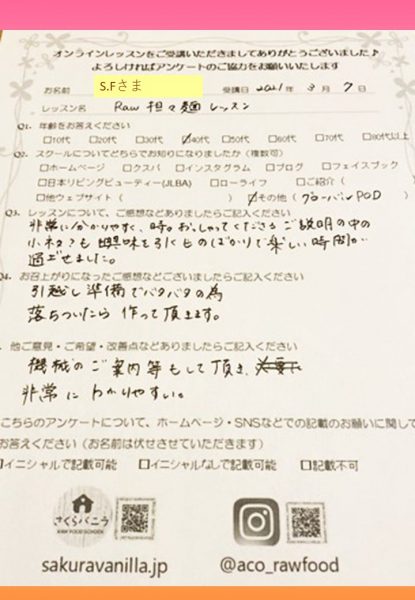 オンラインレッスンをご受講いただきましてありがとうございました♪
よろしければアンケートのご協力をお願いいたします
お名前 S.Fさま 受講日 2021年 3月 7日
レッスン名 Raw 担々麺 レッスン
Q1. 年齢をお答えください
□10代 □20代 □30代 ☑40代 □50代 □60代 □70代 □80代以上
Q2. スクールについてどちらでお知りになりましたか（複数可）
□ホームページ □クスパ □インスタグラム □ブログ □フェイスブック
□日本リビングビューティー(JLBA) □ローライフ □ご紹介（
□他ウェブサイト（ ） ☑その他（ アーバンPOD
Q3. レッスンについて、ご感想などありましたらご記入ください
非常に分かりやすく、時々おっしゃってくださるご説明の中の
小ネタも興味を引くものばかりで楽しい時間が
過ごせました。
Q4. お召上がりになったご感想などございましたらご記入ください
引越し準備でバタバタの為
落ちついたら 作って頂きます。
. 他ご意見・ご希望・改善点などありましたらご記入ください
機械のご案内等もして頂き、
非常に わかりやすい。
こちらのアンケートについて、ホームページ・SNSなどでの記載のお願いに関して
お答えください（お名前は伏せさせていただきます）
イニシャルで記載可能 □イニシャルなしで記載可能 □記載不可
さくらバニラ
RAW FOOD SCHOOL
sakuravanilla.jp
@aco_rawfood